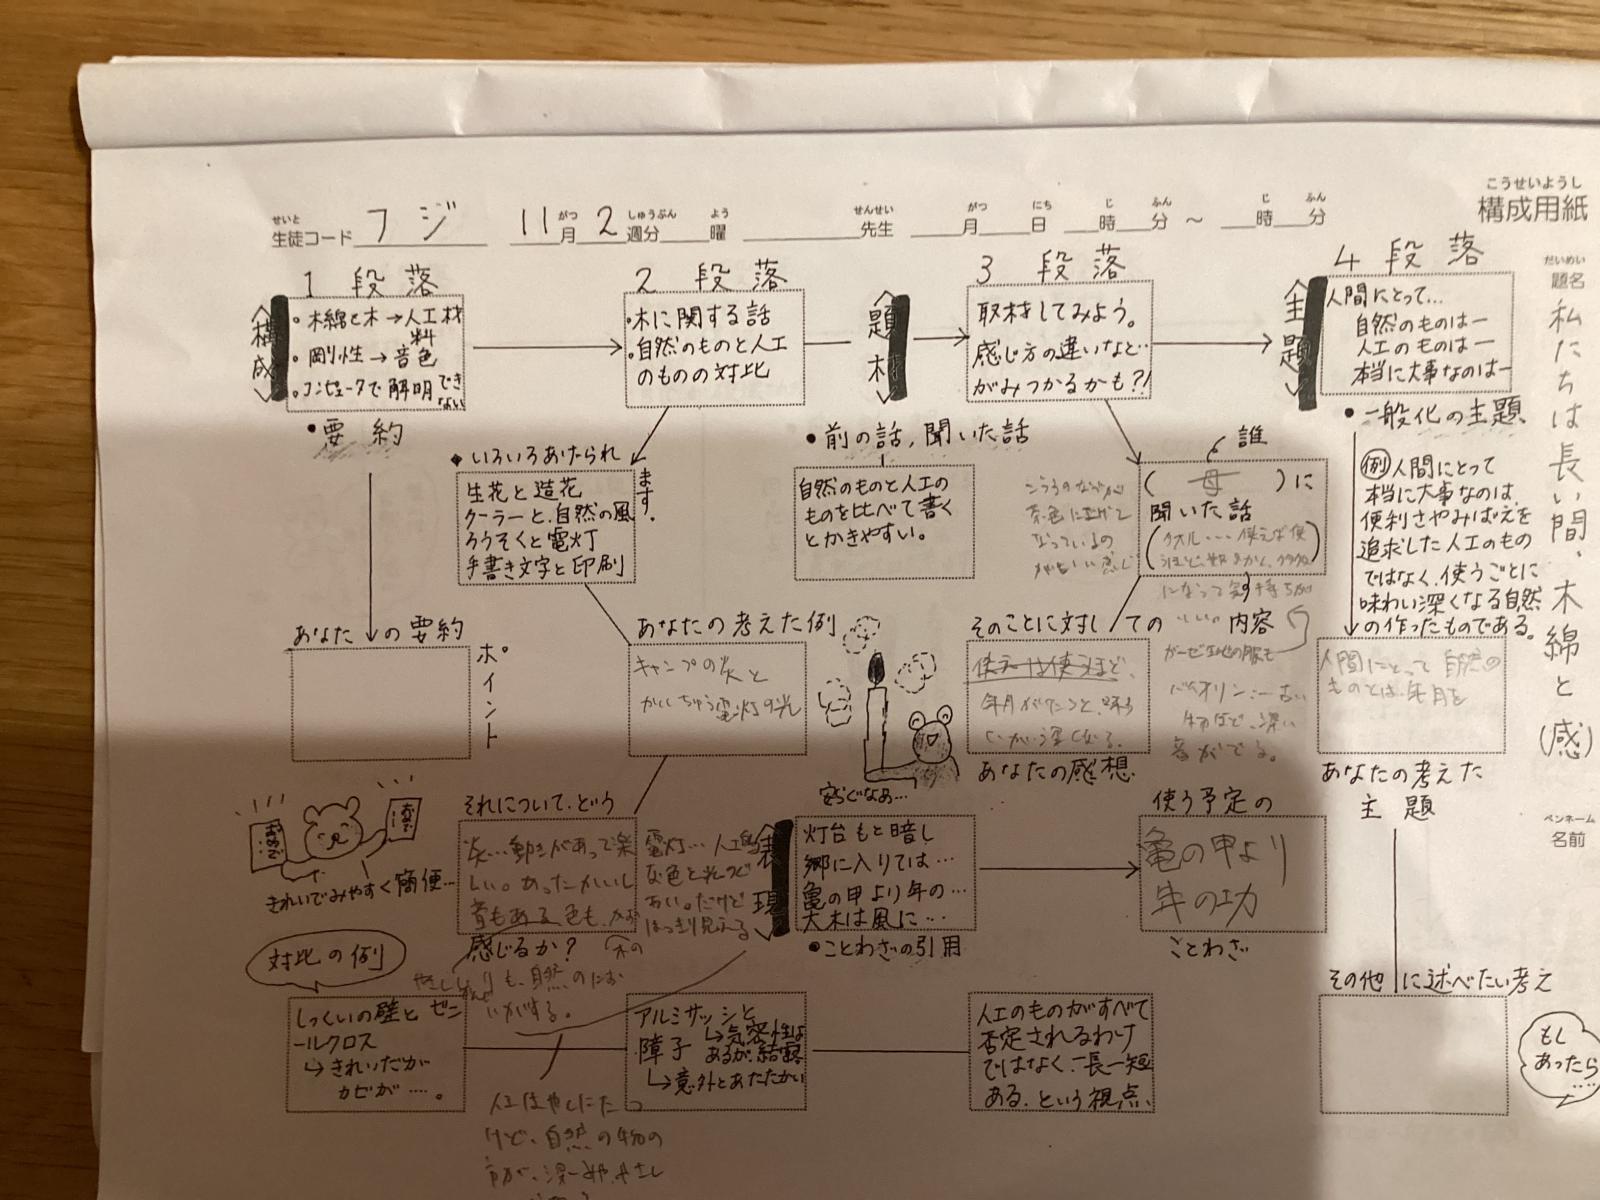 こうせいようし
構成用紙
せいと
生徒コード フジ 11月 2週分 曜 先生 月 日 時 分 ～ 時 分
がつ しゅうぶん よう せんせい がつ にち じ ふん じ ふん
だいめい
題名
私たちは長い間、木綿と(感)
ペンネーム
名前
1 段落
〈構成〉
・木綿と木→人工材料
・剛性→音色
・コンピュータで解明できない
・要約
あなたの要約
ポイント
2 段落
・木に関する話
・自然のものと人工のものの対比
◆いろいろあげられます。
生花と造花
クーラーと、自然の風
ろうそくと電灯
手書き文字と印刷
あなたの考えた例
キャンプの炎と
かいちゅう電灯の光
それについて、どう
炎…動きがあって楽
しい。
感じるか?
電灯…人工的
な色と光
はっきり見える
〈題材〉
・前の話,聞いた話
自然のものと人工の
ものを比べて書く
とかきやすい。
3 段落
取材してみよう。
感じ方の違いなど…
がみつかるかも?!
誰
(母)に
聞いた話
そのことに対しての 内容
使えば使うほど、
年月がたつと、味わ
いがより深くなる。
あなたの感想
ガーゼ生地の服も
バイオリン…古い
物ほど、深い
音がでる。
安らぐなあ…
〈主題〉
4 段落
人間にとって…
自然のものはー
人工のものはー
本当に大事なのはー
・一般化の主題
例 人間にとって
本当に大事なのは、
便利さやみばえを
追求した人工のもの
ではなく、使うごとに
味わい深くなる自然
の作ったものである。
人間にとって自然の
ものとは、年月を
あなたの考えた
主題
その他に述べたい考え
もし
あったら
……
おめで…
きれいでみやすく簡便…
〈表現〉
灯台もと暗し
郷に入りては…
亀の甲より年の…
大木は風に…
・ことわざの引用
使う予定の
亀の甲より
年の功
ことわざ
対比の例
しっくいの壁とビニ
ールクロス
↳きれいだが
カビが……。
アルミサッシと
障子
↳気密性は
あるが、結露
↳意外とあたたかい
人工のものがすべて
否定されるわけ
ではなく、一長一短
ある、という視点、
けど、自然の物の